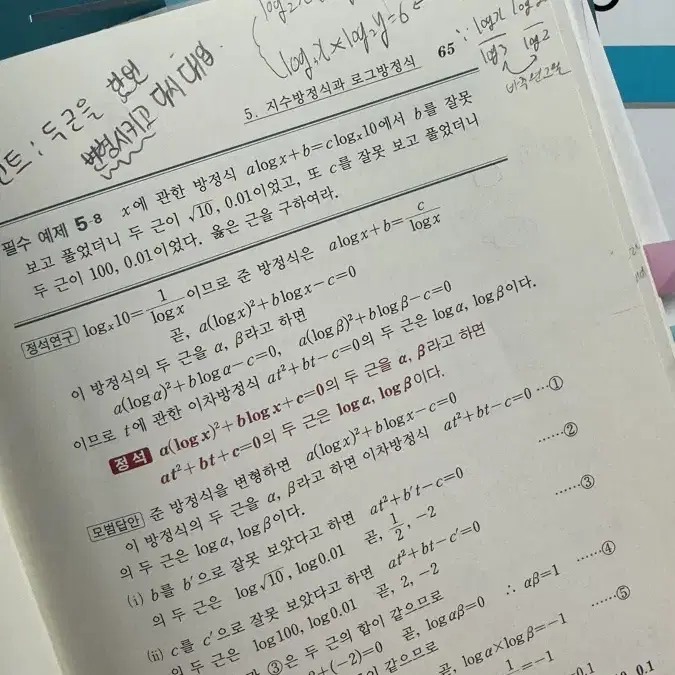 log₂x × log₂y = 6
두근을
변형시키고 다시 대입
5. 지수방정식과 로그방정식 65
필수 예제 5·8 x에 관한 방정식 a log x + b = c logₓ10에서 b를 잘못
보고 풀었더니 두 근이 √10, 0.01이었고, 또 c를 잘못 보고 풀었더니
두 근이 100, 0.01이었다. 옳은 근을 구하여라.
정석연구 logₓ10 = 1/log x 이므로 준 방정식은 a log x + b = c/log x
곧, a(log x)² + b log x − c = 0
이 방정식의 두 근을 α, β라고 하면
a(log α)² + b log α − c = 0, a(log β)² + b log β − c = 0
이므로 t에 관한 이차방정식 at² + bt − c = 0의 두 근은 log α, log β이다.
정석 a(log x)² + b log x + c = 0의 두 근을 α, β라고 하면
at² + bt + c = 0의 두 근은 log α, log β이다.
모범답안 준 방정식을 변형하면 a(log x)² + b log x − c = 0
이 방정식의 두 근을 α, β라고 하면 이차방정식 at² + bt − c = 0 …①
의 두 근은 log α, log β이다.
(i) b를 b′으로 잘못 보았다고 하면 at² + b′t − c = 0 ……②
의 두 근은 log √10, log 0.01 곧, 1/2, −2
(ii) c를 c′으로 잘못 보았다고 하면 at² + bt − c′ = 0 ……③
의 두 근은 log 100, log 0.01 곧, 2, −2
③은 두 근의 합이 같으므로
β + (−2) = 0 곧, log αβ = 0 ∴ αβ = 1 ……④
이 같으므로
곧, log α × log β = −1 ……⑤
= −1